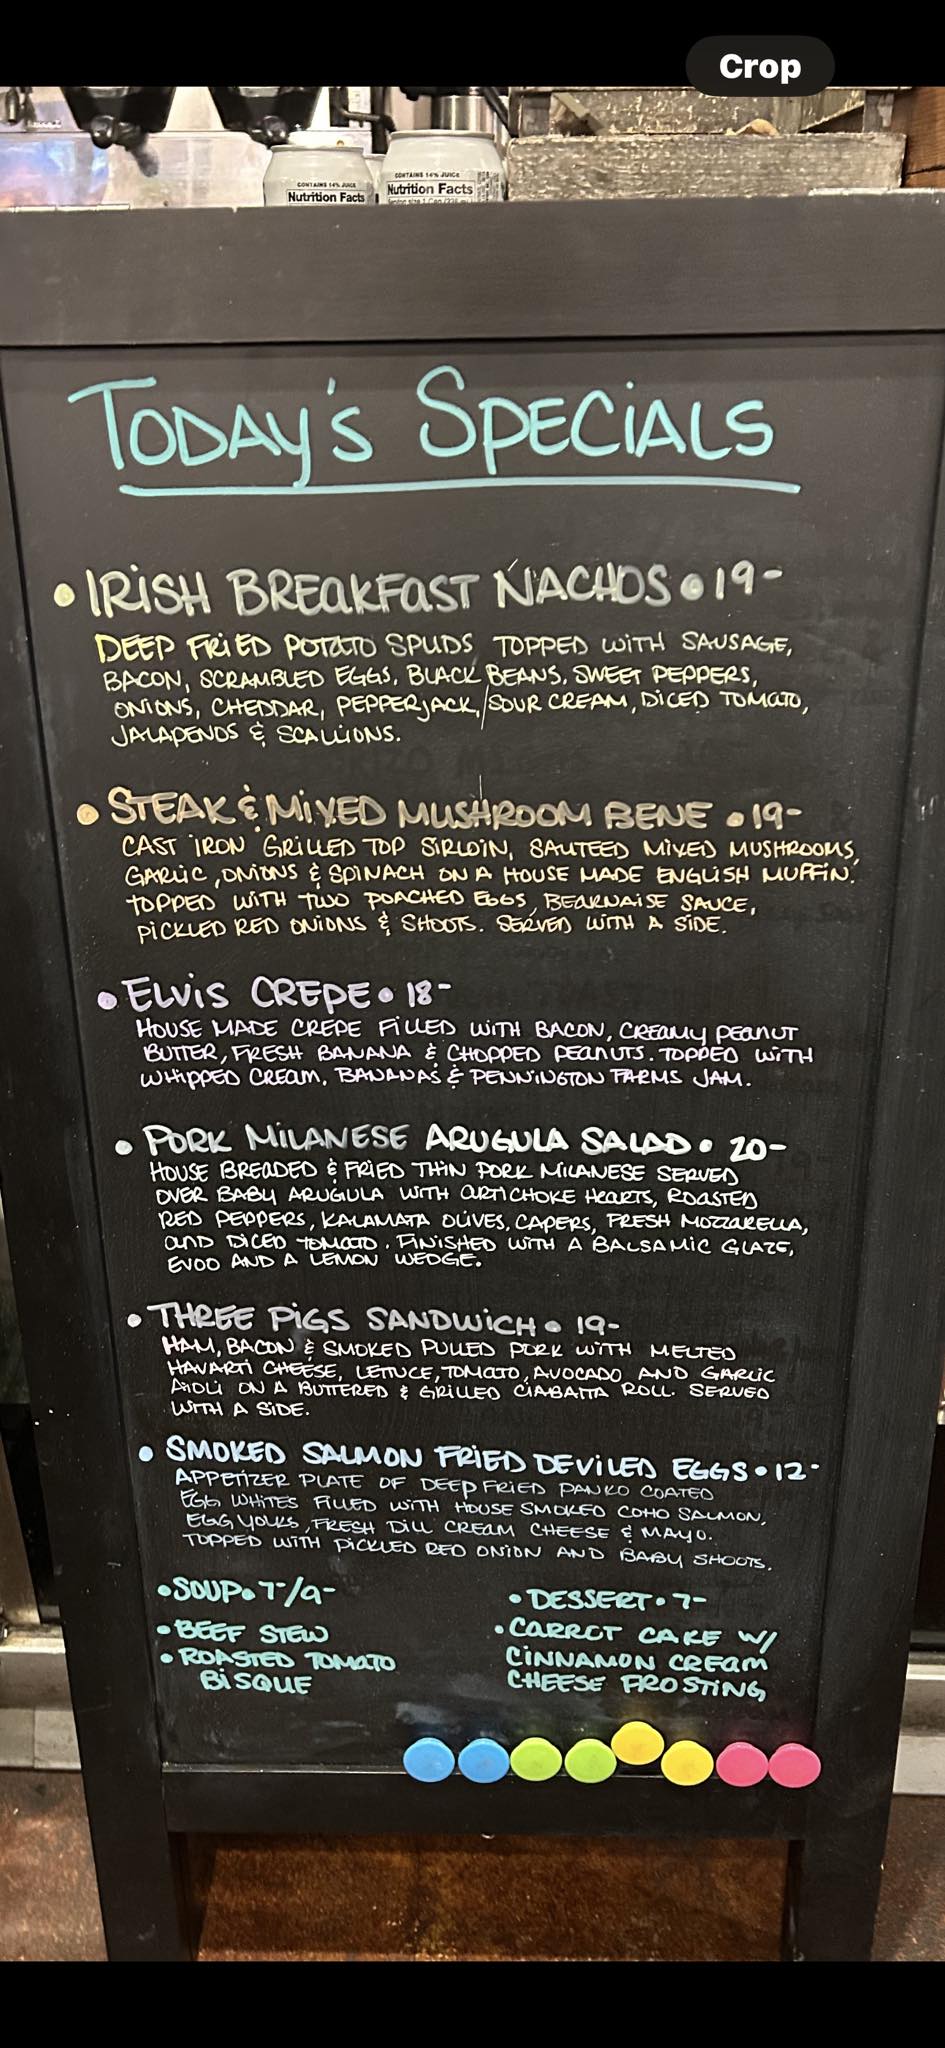 Crop
CONTAINS 14% JUICE
Nutrition Facts
CONTAINS 14% JUICE
Nutrition Facts
TODAY'S SPECIALS
• IRISH BREAKFAST NACHOS • 19-
DEEP FRIED POTATO SPUDS TOPPED WITH SAUSAGE,
BACON, SCRAMBLED EGGS, BLACK BEANS, SWEET PEPPERS,
ONIONS, CHEDDAR, PEPPERJACK, SOUR CREAM, DICED TOMATO,
JALAPENOS & SCALLIONS.
• STEAK & MIXED MUSHROOM BENE • 19-
CAST IRON GRILLED TOP SIRLOIN, SAUTEED MIXED MUSHROOMS,
GARLIC, ONIONS & SPINACH ON A HOUSE MADE ENGLISH MUFFIN.
TOPPED WITH TWO POACHED EGGS, BEARNAISE SAUCE,
PICKLED RED ONIONS & SHOOTS. SERVED WITH A SIDE.
• ELVIS CREPE • 18-
HOUSE MADE CREPE FILLED WITH BACON, CREAMY PEANUT
BUTTER, FRESH BANANA & CHOPPED PEANUTS. TOPPED WITH
WHIPPED CREAM, BANANAS & PENNINGTON FARMS JAM.
• PORK MILANESE ARUGULA SALAD • 20-
HOUSE BREADED & FRIED THIN PORK MILANESE SERVED
OVER BABY ARUGULA WITH ARTICHOKE HEARTS, ROASTED
RED PEPPERS, KALAMATA OLIVES, CAPERS, FRESH MOZZARELLA,
AND DICED TOMATO. FINISHED WITH A BALSAMIC GLAZE,
EVOO AND A LEMON WEDGE.
• THREE PIGS SANDWICH • 19-
HAM, BACON & SMOKED PULLED PORK WITH MELTED
HAVARTI CHEESE, LETTUCE, TOMATO, AVOCADO AND GARLIC
AIOLI ON A BUTTERED & GRILLED CIABATTA ROLL. SERVED
WITH A SIDE.
• SMOKED SALMON FRIED DEVILED EGGS • 12-
APPETIZER PLATE OF DEEP FRIED PANKO COATED
EGG WHITES FILLED WITH HOUSE SMOKED COHO SALMON,
EGG YOLKS, FRESH DILL CREAM CHEESE & MAYO.
TOPPED WITH PICKLED RED ONION AND BABY SHOOTS.
• SOUP • 7-/9-
• BEEF STEW
• ROASTED TOMATO
BISQUE
• DESSERT • 7-
• CARROT CAKE W/
CINNAMON CREAM
CHEESE FROSTING